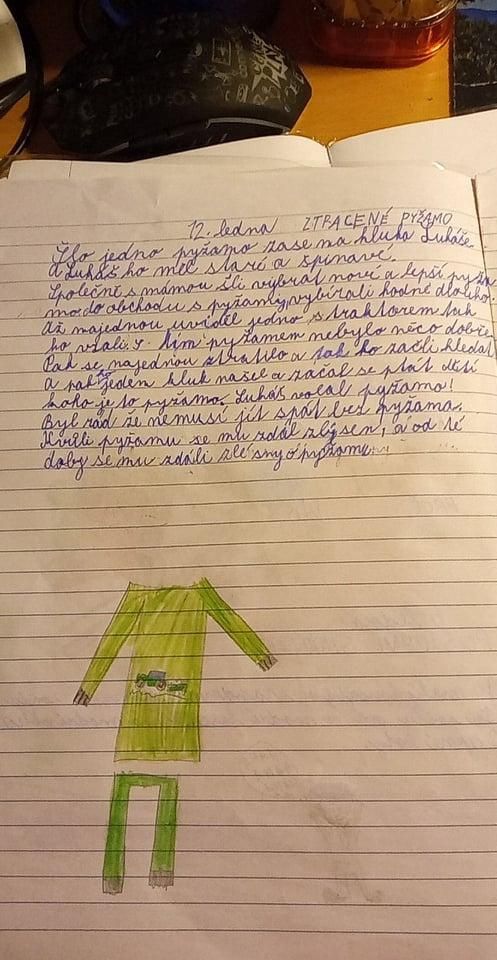 12. ledna ZTRACENÉ PYŽAMO
Šlo jedno pyžamo zase na kluka Lukáše
a Lukáš ho měl staré a špinavé.
Společně s mámou šli vybrat nové a lepší pyža
mo do obchodu s pyžamy, vybírali hodně dlouho
Až najednou uviděl jedno s traktorem tak
ho vzali. S tím pyžamem nebylo něco dobře
Pak se najednou ztratilo a tak ho začli hledat
a pak ho jeden kluk našel a začal se ptát dětí
koho je to pyžamo. Lukáš volal pyžamo!
Byl rád že nemusí jít spát bez pyžama.
Kvůli pyžamu se mu zdál zlý sen, a od té
doby se mu zdáli zlé sny o pyžamu.